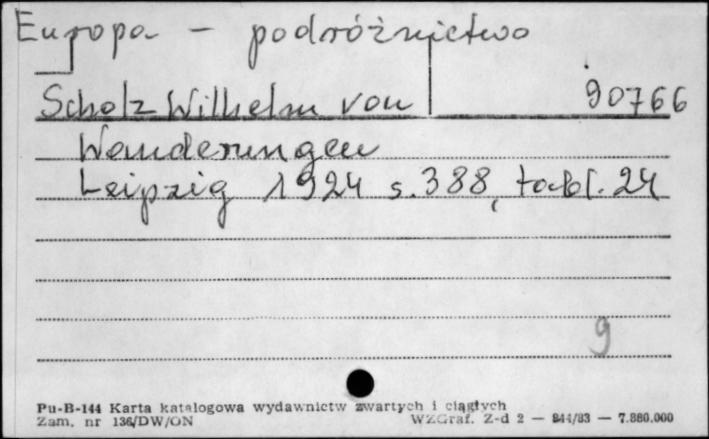 Europa - podróżnictwo
Scholz Wilhelm von 90766
Wanderungen
Leipzig 1924 s. 388, tabl. 24
9
Pu-B-144 Karta katalogowa wydawnictw zwartych i ciągłych
Zam. nr 136/DW/ON WZGraf. Z-d 2 — 244/83 — 7.880.000